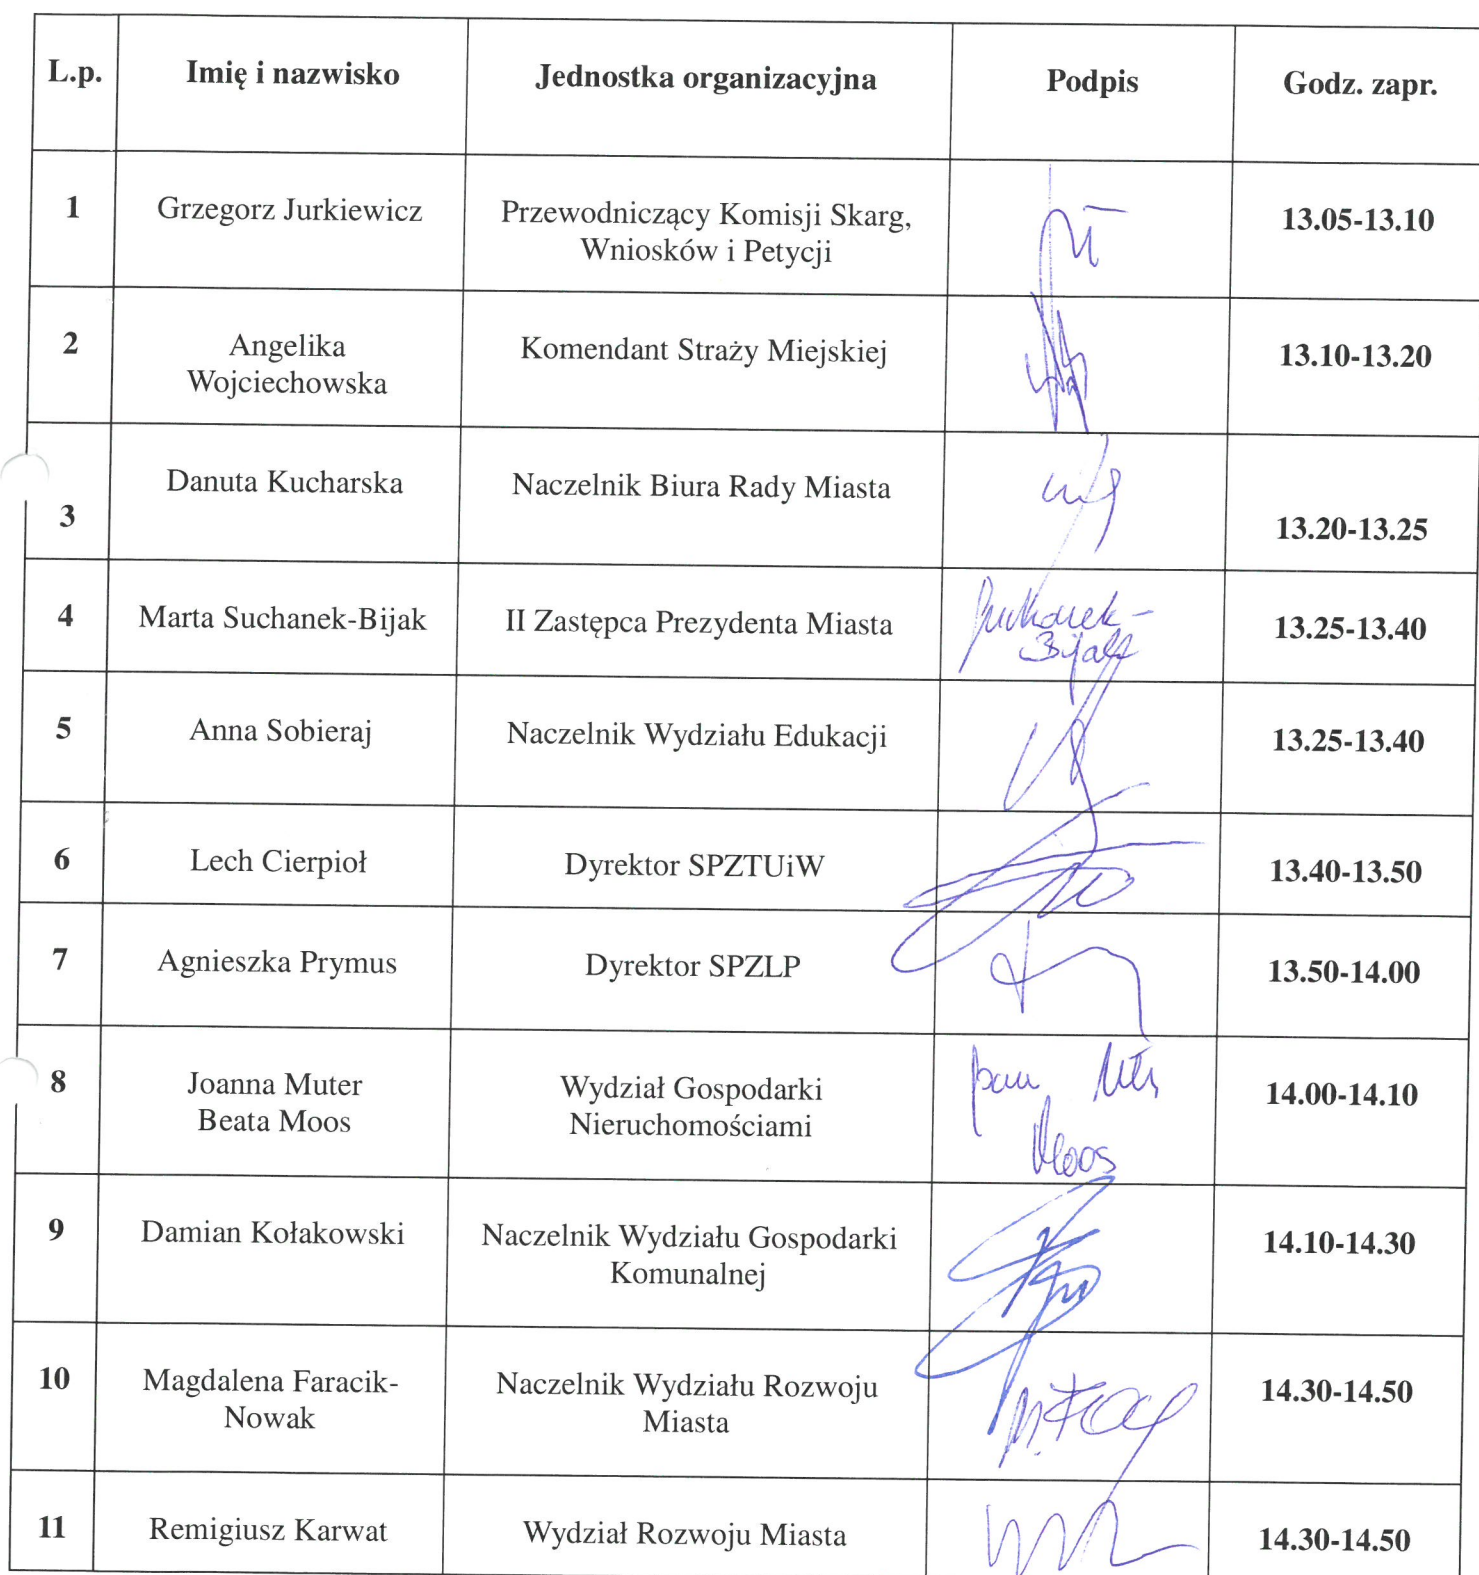 L.p. Imię i nazwisko Jednostka organizacyjna Podpis Godz. zapr.
1 Grzegorz Jurkiewicz Przewodniczący Komisji Skarg, 13.05-13.10
Wniosków i Petycji
2 Angelika Komendant Straży Miejskiej 13.10-13.20
Wojciechowska
3 Danuta Kucharska Naczelnik Biura Rady Miasta 13.20-13.25
4 Marta Suchanek-Bijak II Zastępca Prezydenta Miasta Suchanek- 13.25-13.40
Bijak
5 Anna Sobieraj Naczelnik Wydziału Edukacji 13.25-13.40
6 Lech Cierpioł Dyrektor SPZTUiW 13.40-13.50
7 Agnieszka Prymus Dyrektor SPZLP 13.50-14.00
8 Joanna Muter Wydział Gospodarki 14.00-14.10
Beata Moos Nieruchomościami
Moos
9 Damian Kołakowski Naczelnik Wydziału Gospodarki 14.10-14.30
Komunalnej
10 Magdalena Faracik- Naczelnik Wydziału Rozwoju 14.30-14.50
Nowak Miasta
11 Remigiusz Karwat Wydział Rozwoju Miasta 14.30-14.50